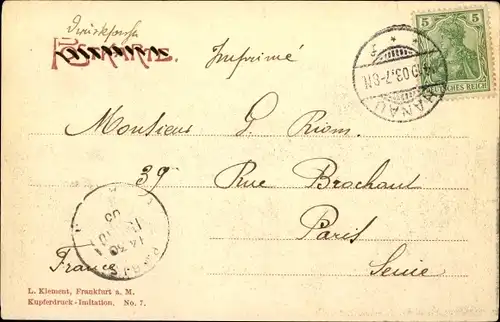 Drucksache
Imprimé
5 5
DEUTSCHES REICH
HANAU
03.7-8N
Monsieur G. Riom.
39 Rue Brochant
Paris
Seine
France
PARIS
L. Klement, Frankfurt a. M.
Kupferdruck-Imitation. No. 7.